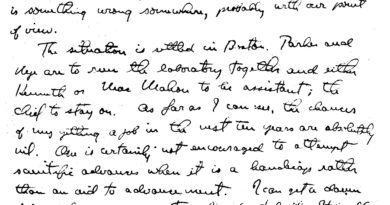 is something wrong somewhere, probably with our point
of view.
The situation is settled in Boston. Parker and
are to run the laboratory together and either
Kenneth or MacMahon to be assistant; the
chief to stay on. As far as I can see, the chances
of my getting a job in the next ten years are absolutely
nil. One is certainly not encouraged to attempt
scientific advances when it is a handicap rather
than an aid to advancement. I can get a dozen